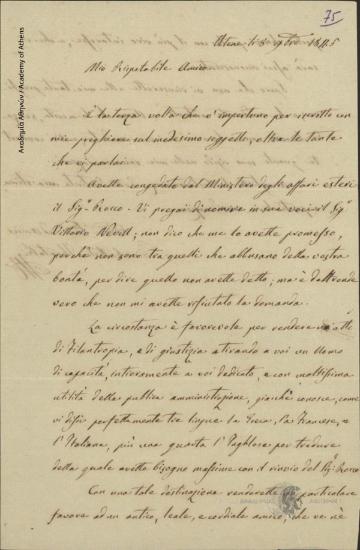 75
Atene li 5 9bre 1845
Mio Rispettabile Amico
È la terza volta che v'importuno per iscritto con
mie preghiere sul medesimo soggetto, oltre le tante
che vi parlai.
Avette congedato dal Ministero degli affari esteri
il Sigr Rocco. Vi pregai di nominare in sua vece il Sigr
Vittorio Nevill; non dico che me lo avette promesso,
perchè non sono tra quelli che abbusano della vostra
bontà, per dire quello non avette detto; ma è d'altronde
vero che non mi avette rifiutato la domanda.
La circostanza è favorevole per rendere un atto
di Filantropia, e di giustizia attirando a voi un Uomo
di capacità, intieramente a voi dedicato, e con moltissima
utilità della publica amministrazione, giacchè conosce, come
vi dissi perfettamente tre lingue la Greca, la Francese, e
l'Italiana, più una quarta l'Inglese per tradurre
della quale avette bisogno massime con il rinvio del Sigr Rocco
Con una tale destinazione renderette un particolare
favore ad un antico, leale, e cordiale amico, che ve nè
Ακαδημία Αθηνών / Academy of Athens